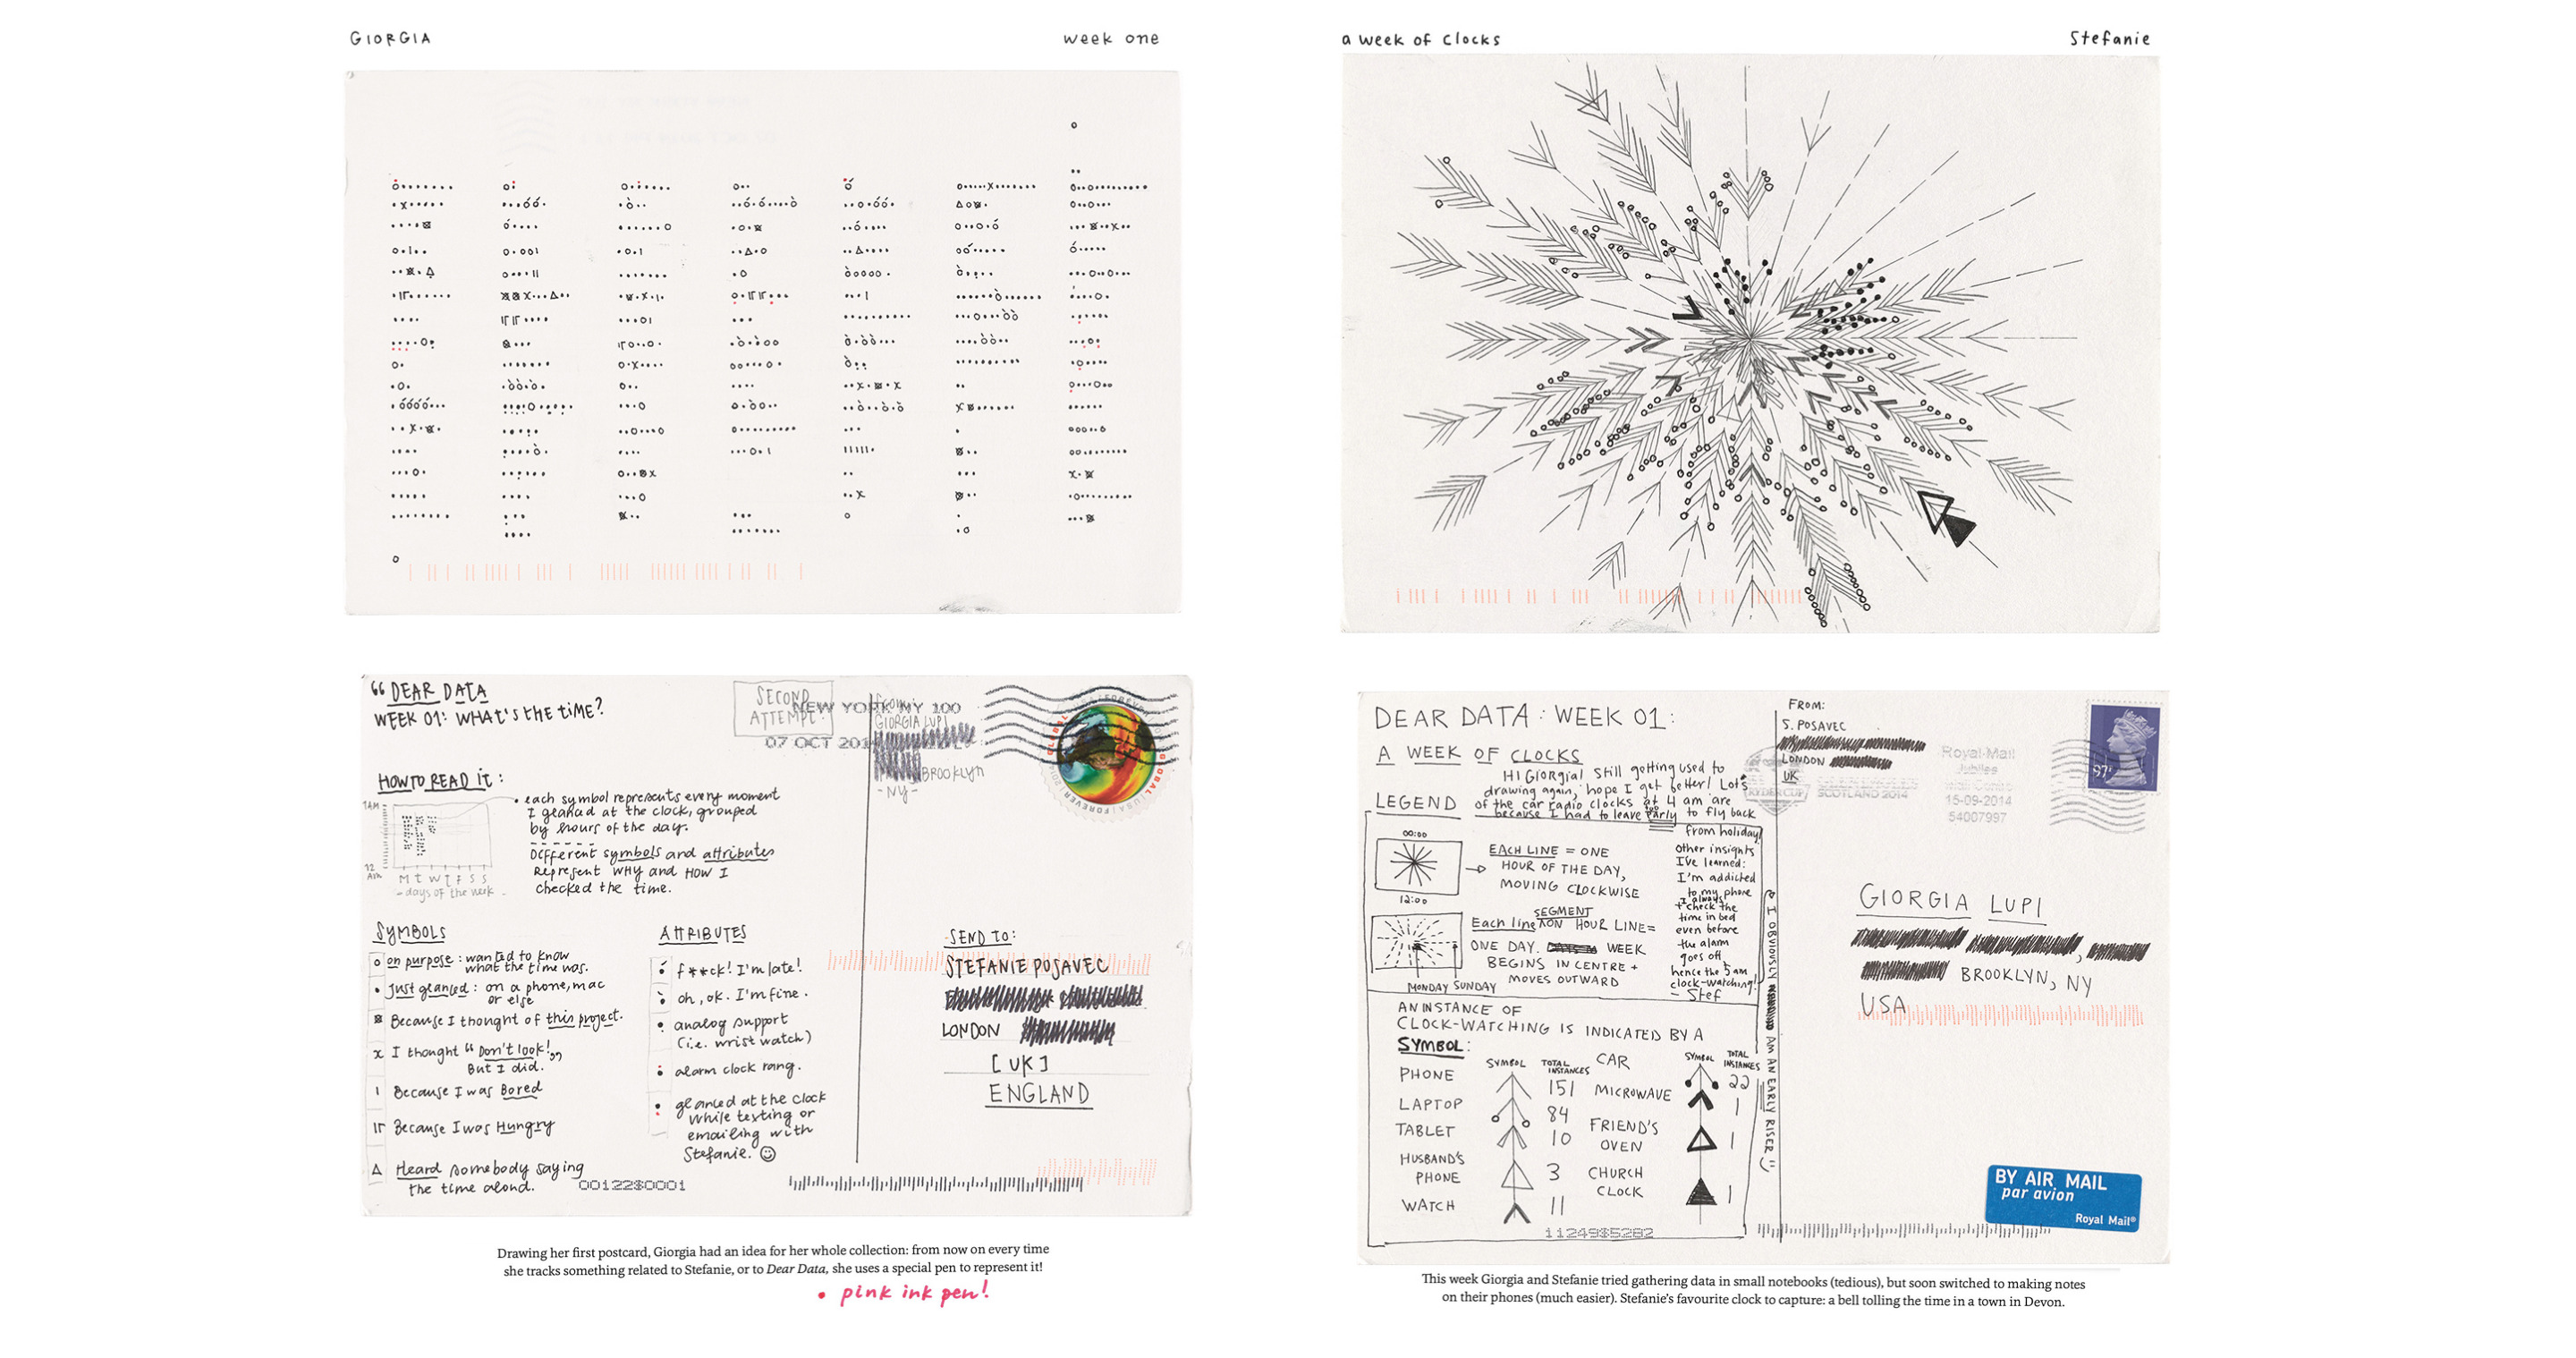 GIORGIA
week one
a week of clocks
Stefanie
"DEAR DATA
WEEK 01: WHAT'S THE TIME?
SECOND
ATTEMPT!
NEW YORK NY 100
07 OCT 201
FROM:
GIORGIA LUPI
BROOKLYN
-NY-
HOW TO READ IT:
1AM
12
AM
M T W T F S S
- days of the week -
each symbol represents every moment
I glanced at the clock, grouped
by hours of the day.
Different symbols and attributes
Represent WHY and HOW I
checked the time.
SYMBOLS
on purpose: wanted to know
what the time was.
Just glanced: on a phone, mac
or else
Because I thought of this project.
I thought "Don't look!"
But I did.
Because I was Bored
Because I was Hungry
Heard somebody saying
the time aloud.
ATTRIBUTES
f**ck! I'm late!
oh, ok. I'm fine.
analog support
(i.e. wrist watch)
alarm clock rang.
glanced at the clock
while texting or
emailing with
Stefanie. ☺
SEND TO:
STEFANIE POSAVEC
LONDON
[UK]
ENGLAND
00122$0001
Drawing her first postcard, Giorgia had an idea for her whole collection: from now on every time
she tracks something related to Stefanie, or to Dear Data, she uses a special pen to represent it!
• pink ink pen!
DEAR DATA: WEEK 01:
A WEEK OF CLOCKS
HI Giorgia! Still getting used to
drawing again, hope I get better! Lots
of the car radio clocks at 4 am are
because I had to leave too early to fly back
from holiday!
LEGEND
00:00
12:00
EACH LINE = ONE
HOUR OF THE DAY,
MOVING CLOCKWISE
SEGMENT
Each line ON HOUR LINE=
ONE DAY. WEEK
BEGINS IN CENTRE +
MOVES OUTWARD
MONDAY SUNDAY
other insights
I've learned:
I'm addicted
to my phone
I always
+ check the
time in bed
even before
the alarm
goes off,
hence the 5 am
clock-watching!
- Stef
& I OBVIOUSLY AM AN EARLY RISER
AN INSTANCE OF
CLOCK-WATCHING IS INDICATED BY A
SYMBOL:
SYMBOL
TOTAL
INSTANCES
PHONE 151
LAPTOP 84
TABLET 10
HUSBAND'S
PHONE 3
WATCH 11
SYMBOL
TOTAL
INSTANCES
CAR 22
MICROWAVE 1
FRIEND'S
OVEN 1
CHURCH
CLOCK 1
11249$5282
FROM:
S. POSAVEC
LONDON
UK
Royal Mail
RYDER CUP
SCOTLAND 2014
15-09-2014
54007997
97P
GIORGIA LUPI
BROOKLYN, NY
USA
BY AIR MAIL
par avion
Royal Mail®
This week Giorgia and Stefanie tried gathering data in small notebooks (tedious), but soon switched to making notes
on their phones (much easier). Stefanie's favourite clock to capture: a bell tolling the time in a town in Devon.